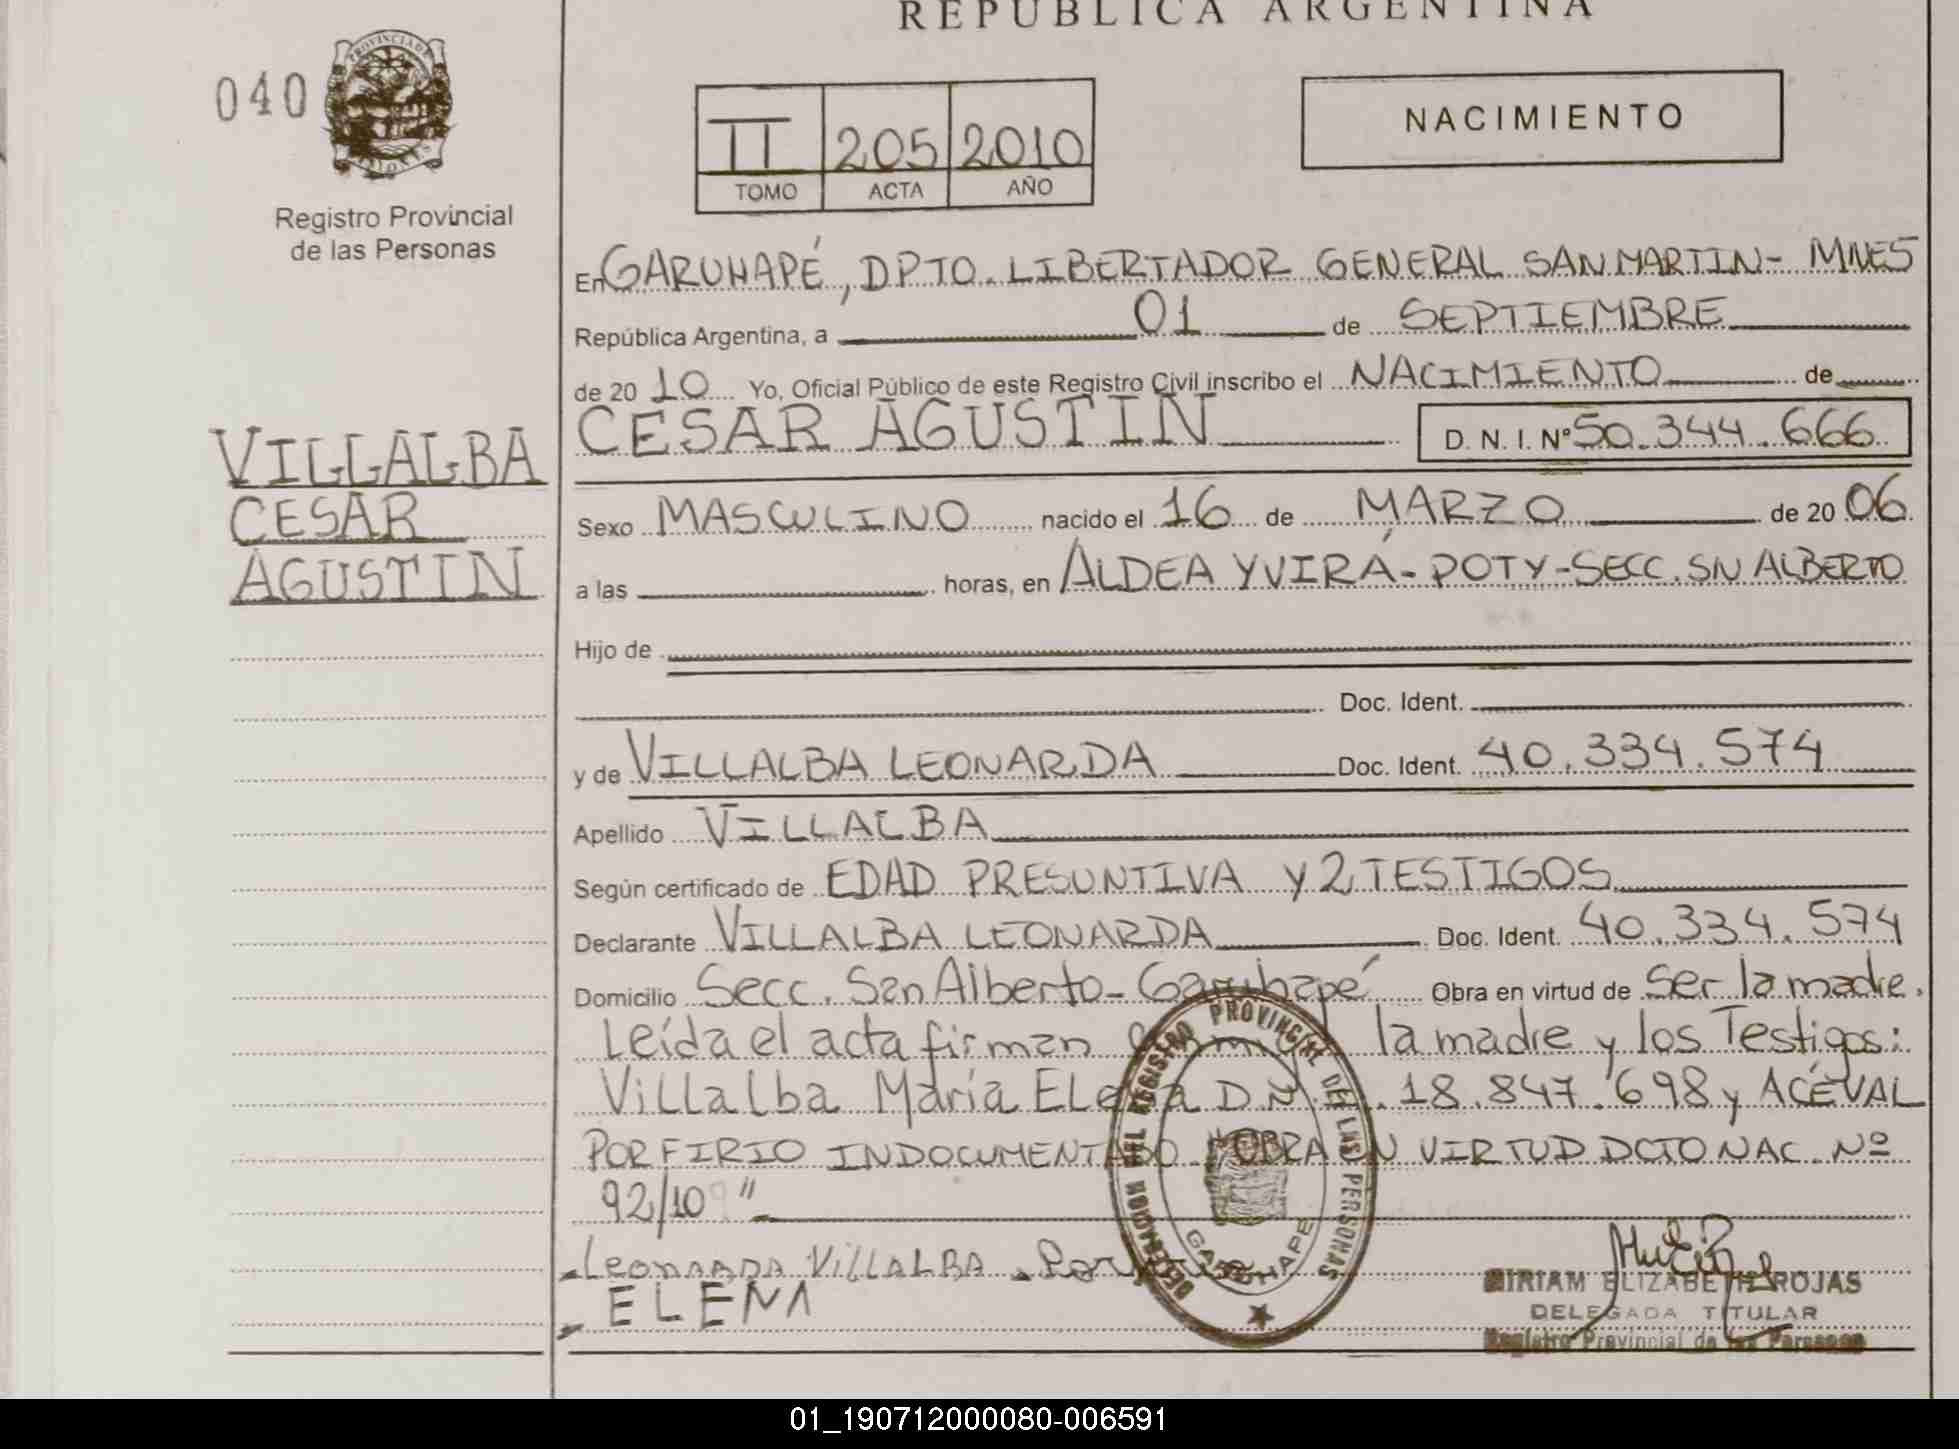 REPUBLICA ARGENTINA
040
PROVINCIA DE MISIONES
Registro Provincial
de las Personas
II 205 2010
TOMO ACTA AÑO
NACIMIENTO
En GARUHAPÉ, DPTO. LIBERTADOR GENERAL SAN MARTIN- MNES
República Argentina, a 01 de SEPTIEMBRE
de 20 10 Yo, Oficial Público de este Registro Civil inscribo el NACIMIENTO de
CESAR AGUSTIN D. N. I. Nº 50.344.666
VILLALBA
CESAR
AGUSTIN
Sexo MASCULINO nacido el 16 de MARZO de 20 06
a las horas, en ALDEA YVIRÁ-POTY-SECC. SN ALBERTO
Hijo de
Doc. Ident.
y de VILLALBA LEONARDA Doc. Ident. 40.334.574
Apellido VILLALBA
Según certificado de EDAD PRESUNTIVA y 2 TESTIGOS
Declarante VILLALBA LEONARDA Doc. Ident. 40.334.574
Domicilio Secc. San Alberto- Garuhapé Obra en virtud de ser la madre.
Leída el acta firman la madre y los Testigos:
Villalba María Elena D.N. 18.847.698 y ACÉVAL
PORFIRIO INDOCUMENTADO. "OBRA EN VIRTUD DCTO NAC. Nº
92/10"
LEONARDA VILLALBA
ELENA
DELEGACION DEL REGISTRO PROVINCIAL DE LAS PERSONAS
GARUHAPE
MIRIAM ELIZABETH ROJAS
DELEGADA TITULAR
Registro Provincial de las Personas
01_190712000080-006591